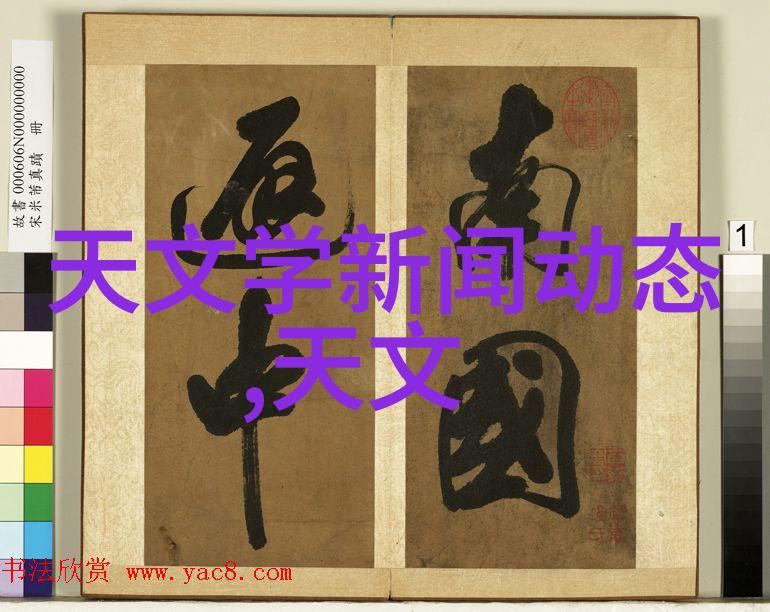 天文学新闻动态
,天文
南
國
中
故書 000606N000000000
宋米芾真蹟 冊
1
书法欣赏 www.yac8.com